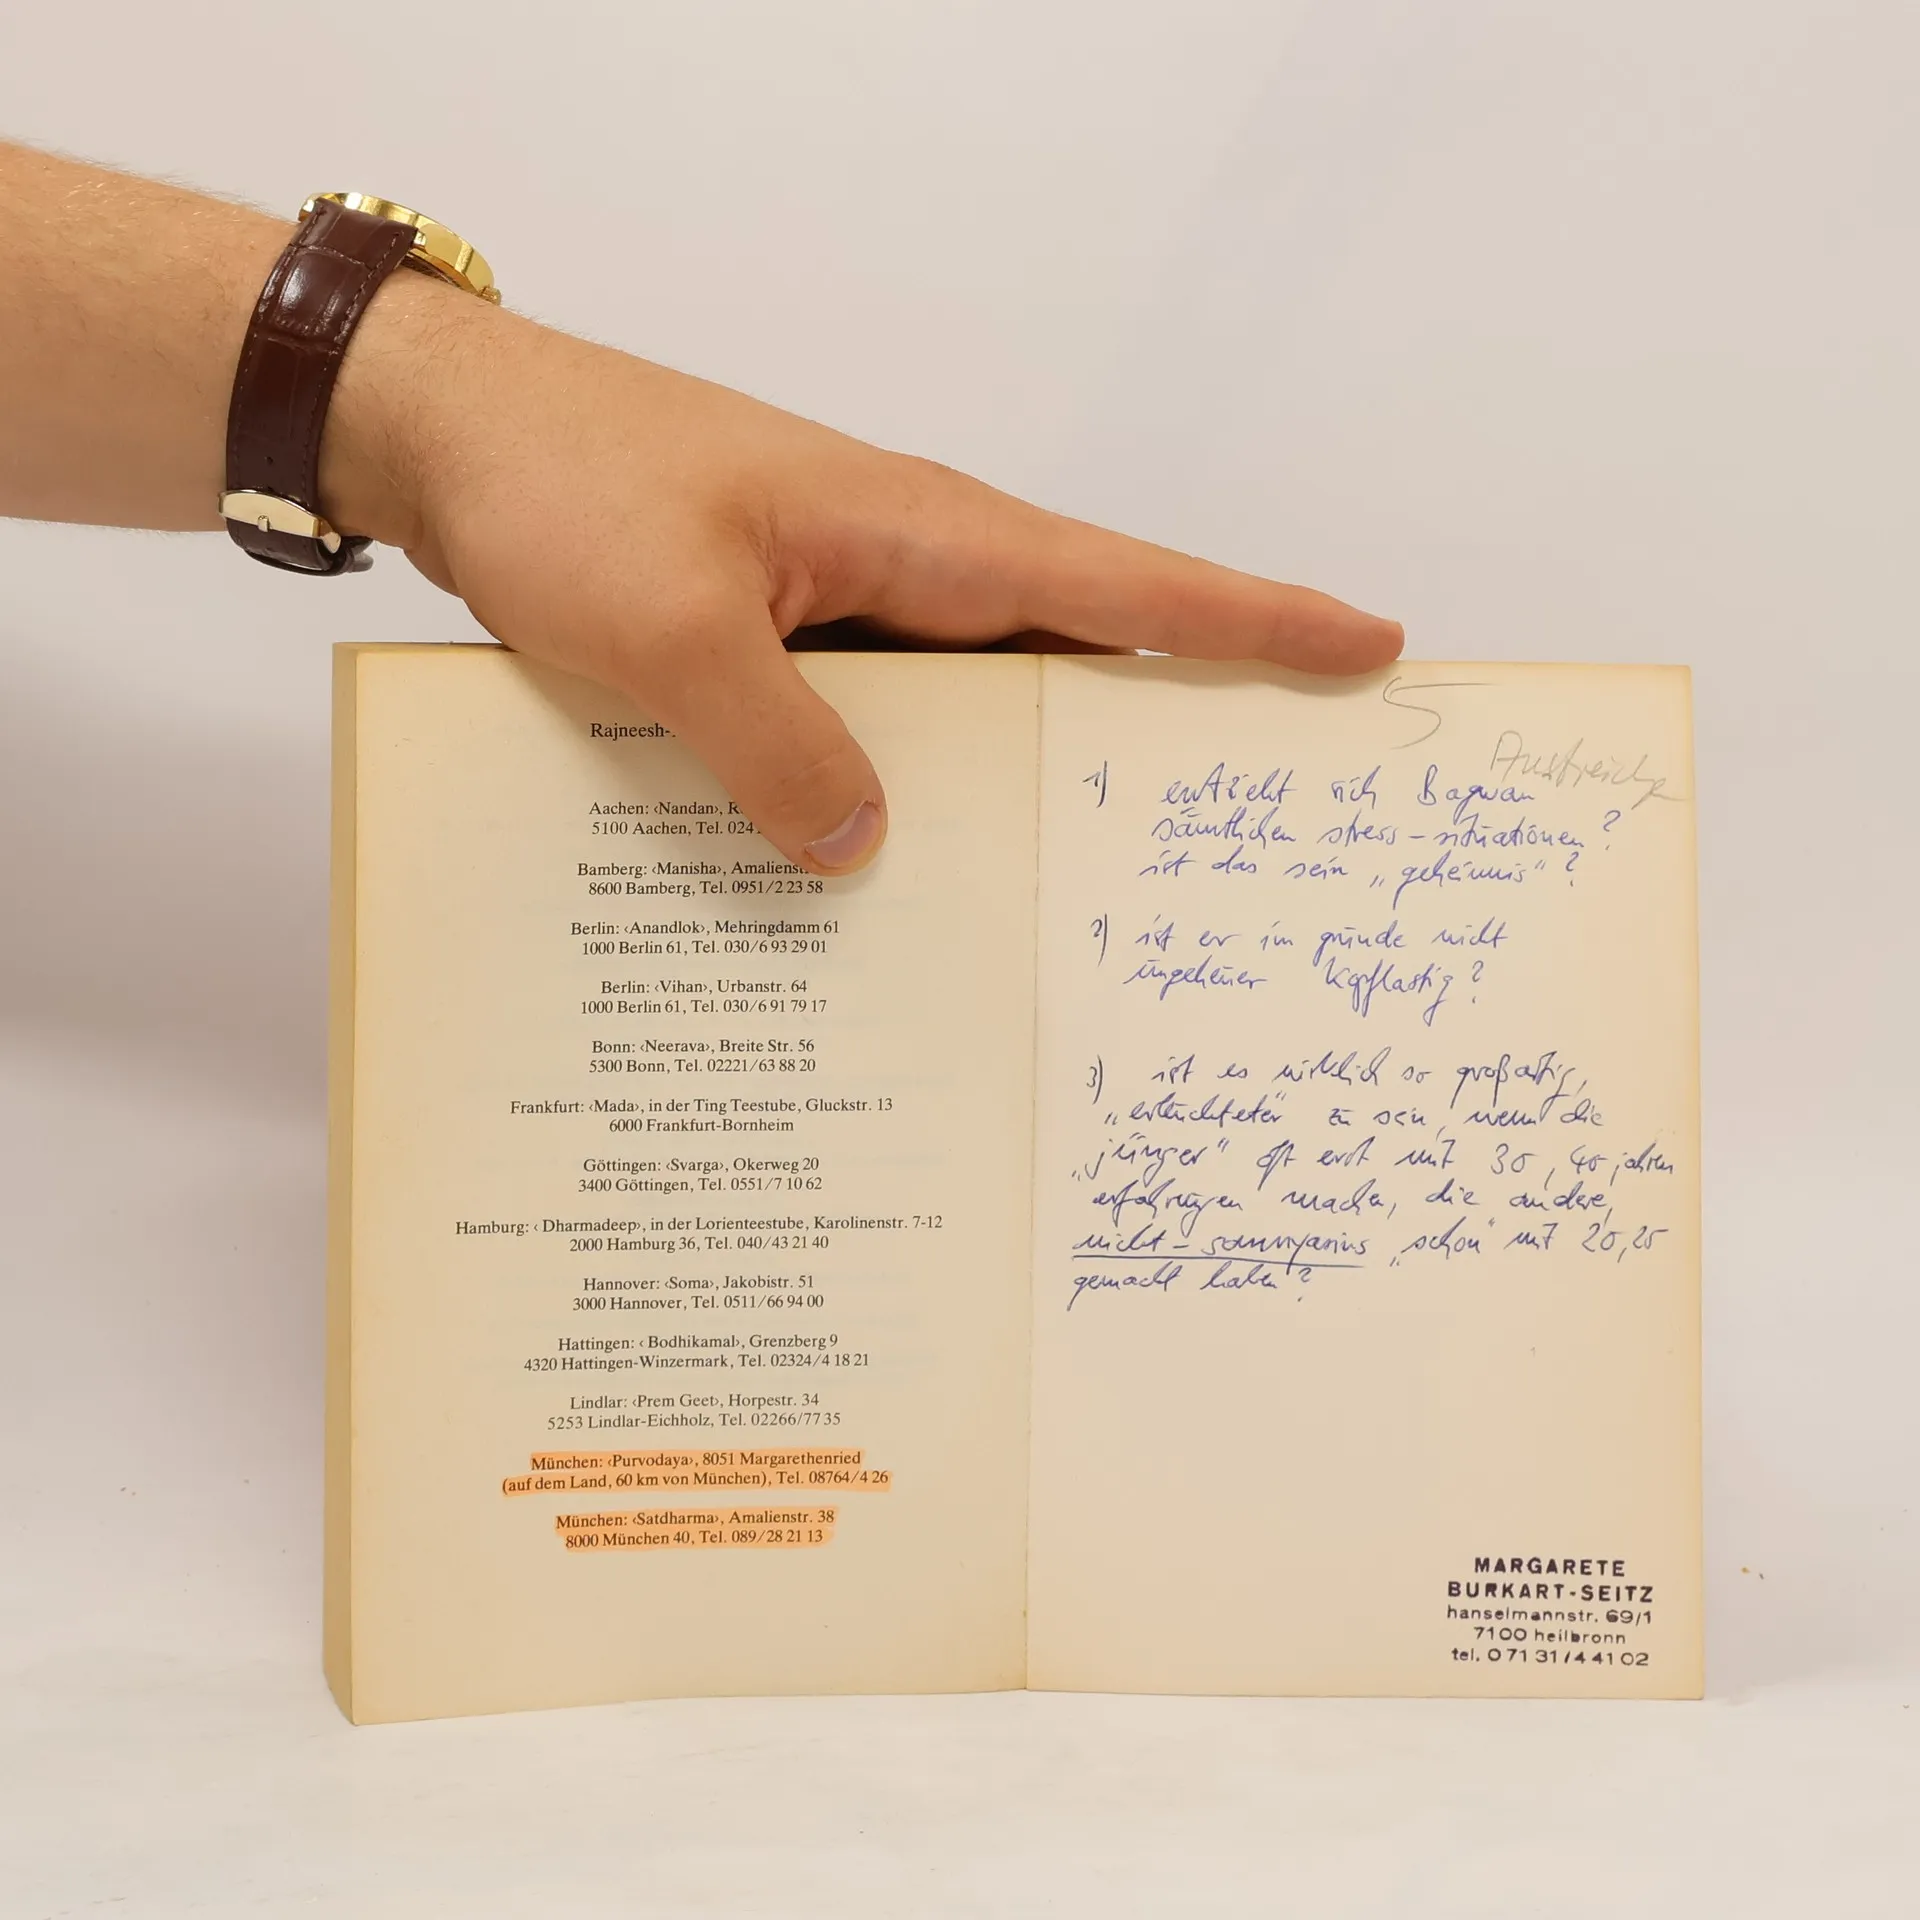 Rajneesh-
Aachen: ‹Nandan›,
5100 Aachen, Tel.
Bamberg: ‹Manisha›,
8600 Bamberg, Tel. 0951/2 23 58
Berlin: ‹Anandlok›, Mehringdamm 61
1000 Berlin 61, Tel. 030/6 93 29 01
Berlin: ‹Vihan›, Urbanstr. 64
1000 Berlin 61, Tel. 030/6 91 79 17
Bonn: ‹Neerava›, Breite Str. 56
5300 Bonn, Tel. 02221/63 88 20
Frankfurt: ‹Mada›, in der Ting Teestube, Gluckstr. 13
6000 Frankfurt-Bornheim
Göttingen: ‹Svarga›, Okerweg 20
3400 Göttingen, Tel. 0551/7 10 62
Hamburg: ‹ Dharmadeep›, in der Lorienteestube, Karolinenstr. 7-12
2000 Hamburg 36, Tel. 040/43 21 40
Hannover: ‹Soma›, Jakobistr. 51
3000 Hannover, Tel. 0511/66 94 00
Hattingen: ‹ Bodhikamal›, Grenzberg 9
4320 Hattingen-Winzermark, Tel. 02324/4 18 21
Lindlar: ‹Prem Geet›, Horpestr. 34
5253 Lindlar-Eichholz, Tel. 02266/77 35
München: ‹Purvodaya›, 8051 Margarethenried
(auf dem Land, 60 km von München), Tel. 08764/4 26
München: ‹Satdharma›, Amalienstr. 38
8000 München 40, Tel. 089/28 21 13
5
1) entzieht sich Bagwan
sämtlichen stress-situationen?
ist das sein „geheimnis"?
2) ist er im grunde nicht
ungeheuer kopflastig?
3) ist es wirklich so großartig,
„erleuchteter" zu sein, wenn die
„jünger" oft erst mit 30, 40 jahren
erfahrungen machen, die andere,
nicht-sannyasins „schon" mit 20, 25
gemacht haben?
MARGARETE
BURKART-SEITZ
hanselmannstr. 69/1
7100 heilbronn
tel. 0 71 31/4 41 02